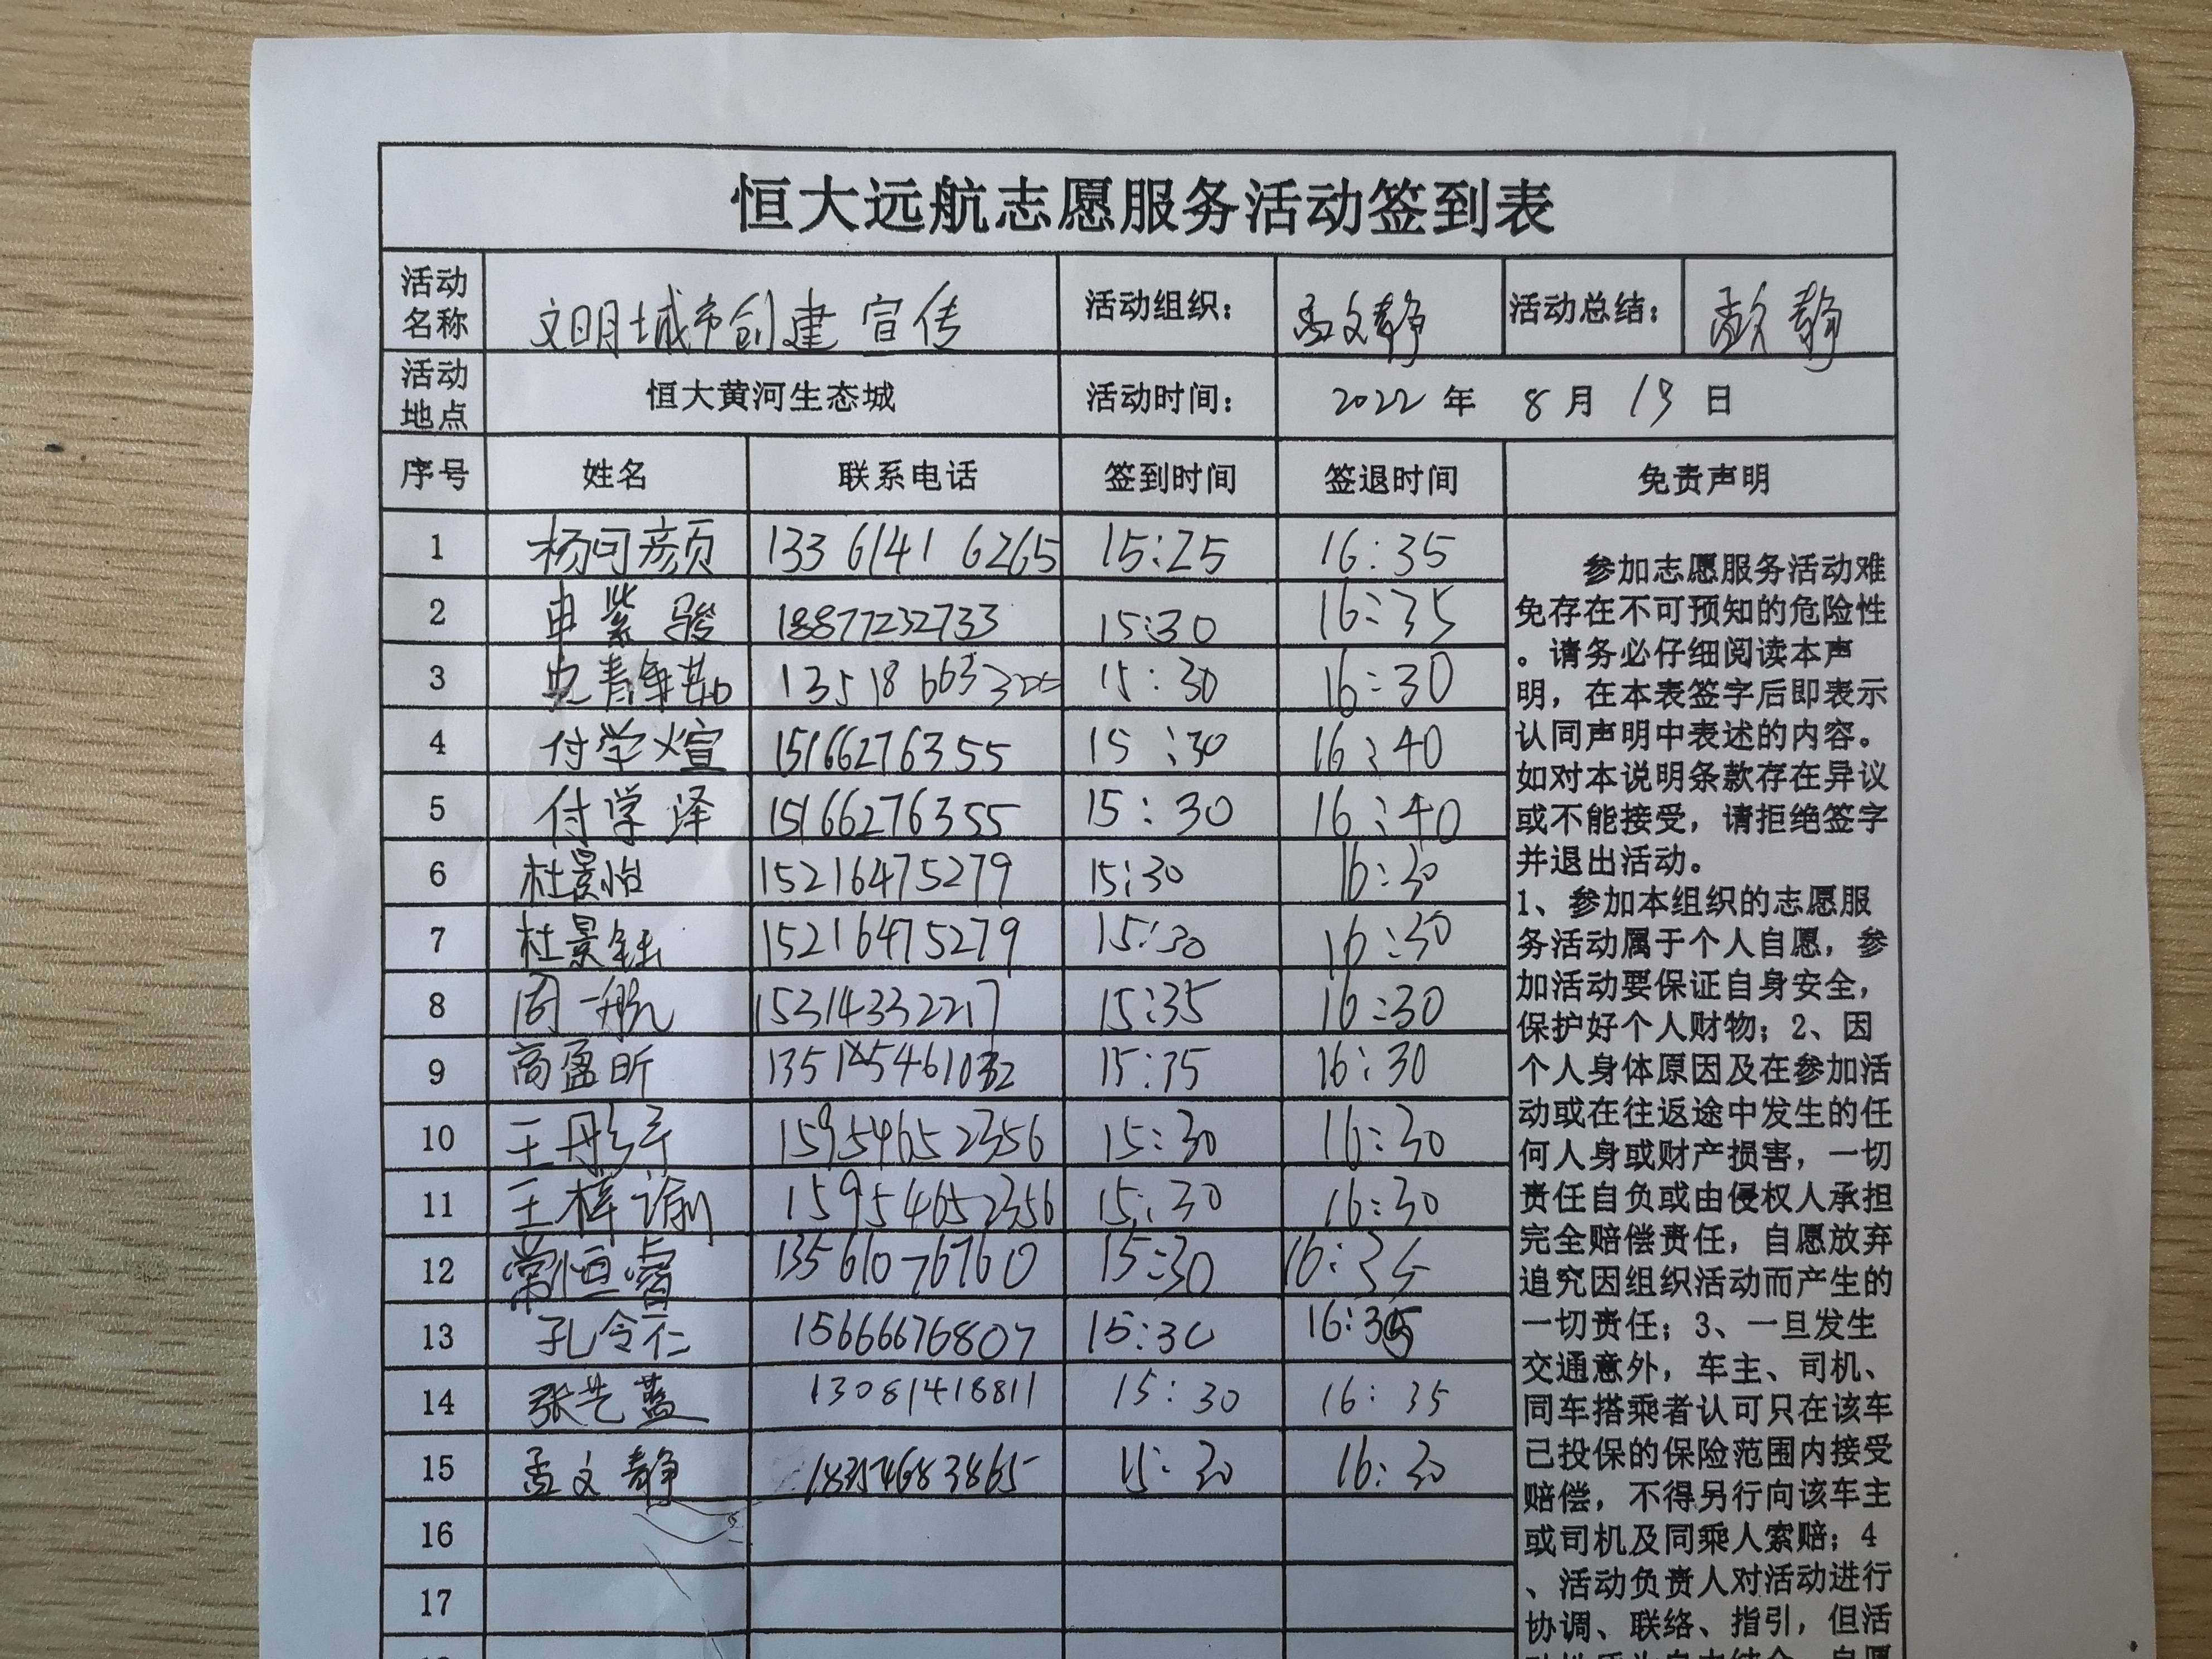 恒大远航志愿服务活动签到表
活动名称 文明城市创建宣传 活动组织： 孟文静 活动总结： 孟文静
活动地点 恒大黄河生态城 活动时间： 2022年 8月19日
序号 姓名 联系电话 签到时间 签退时间 免责声明
1 杨可颜 13361416265 15:25 16:35
2 申紫骏 18877232733 15:30 16:35
3 13518663 15:30 16:30
4 付学煊 15166276355 15:30 16:40
5 付学泽 15166276355 15:30 16:40
6 杜景怡 15216475279 15:30 16:30
7 杜景钰 15216475279 15:30 16:30
8 周一航 15314332217 15:35 16:30
9 高盈昕 15:35 16:30
10 王丹 15954652356 15:30 16:30
11 王梓谕 15954652356 15:30 16:30
12 常恒睿 13561076760 15:30 16:35
13 孔令仁 15666676807 15:30 16:35
14 张艺蓝 13081418811 15:30 16:35
15 孟文静 18354683865 15:30 16:30
16
17
参加志愿服务活动难
免存在不可预知的危险性
。请务必仔细阅读本声
明，在本表签字后即表示
认同声明中表述的内容。
如对本说明条款存在异议
或不能接受，请拒绝签字
并退出活动。
1、参加本组织的志愿服
务活动属于个人自愿，参
加活动要保证自身安全，
保护好个人财物；2、因
个人身体原因及在参加活
动或在往返途中发生的任
何人身或财产损害，一切
责任自负或由侵权人承担
完全赔偿责任，自愿放弃
追究因组织活动而产生的
一切责任；3、一旦发生
交通意外，车主、司机、
同车搭乘者认可只在该车
已投保的保险范围内接受
赔偿，不得另行向该车主
或司机及同乘人索赔；4
、活动负责人对活动进行
协调、联络、指引，但活